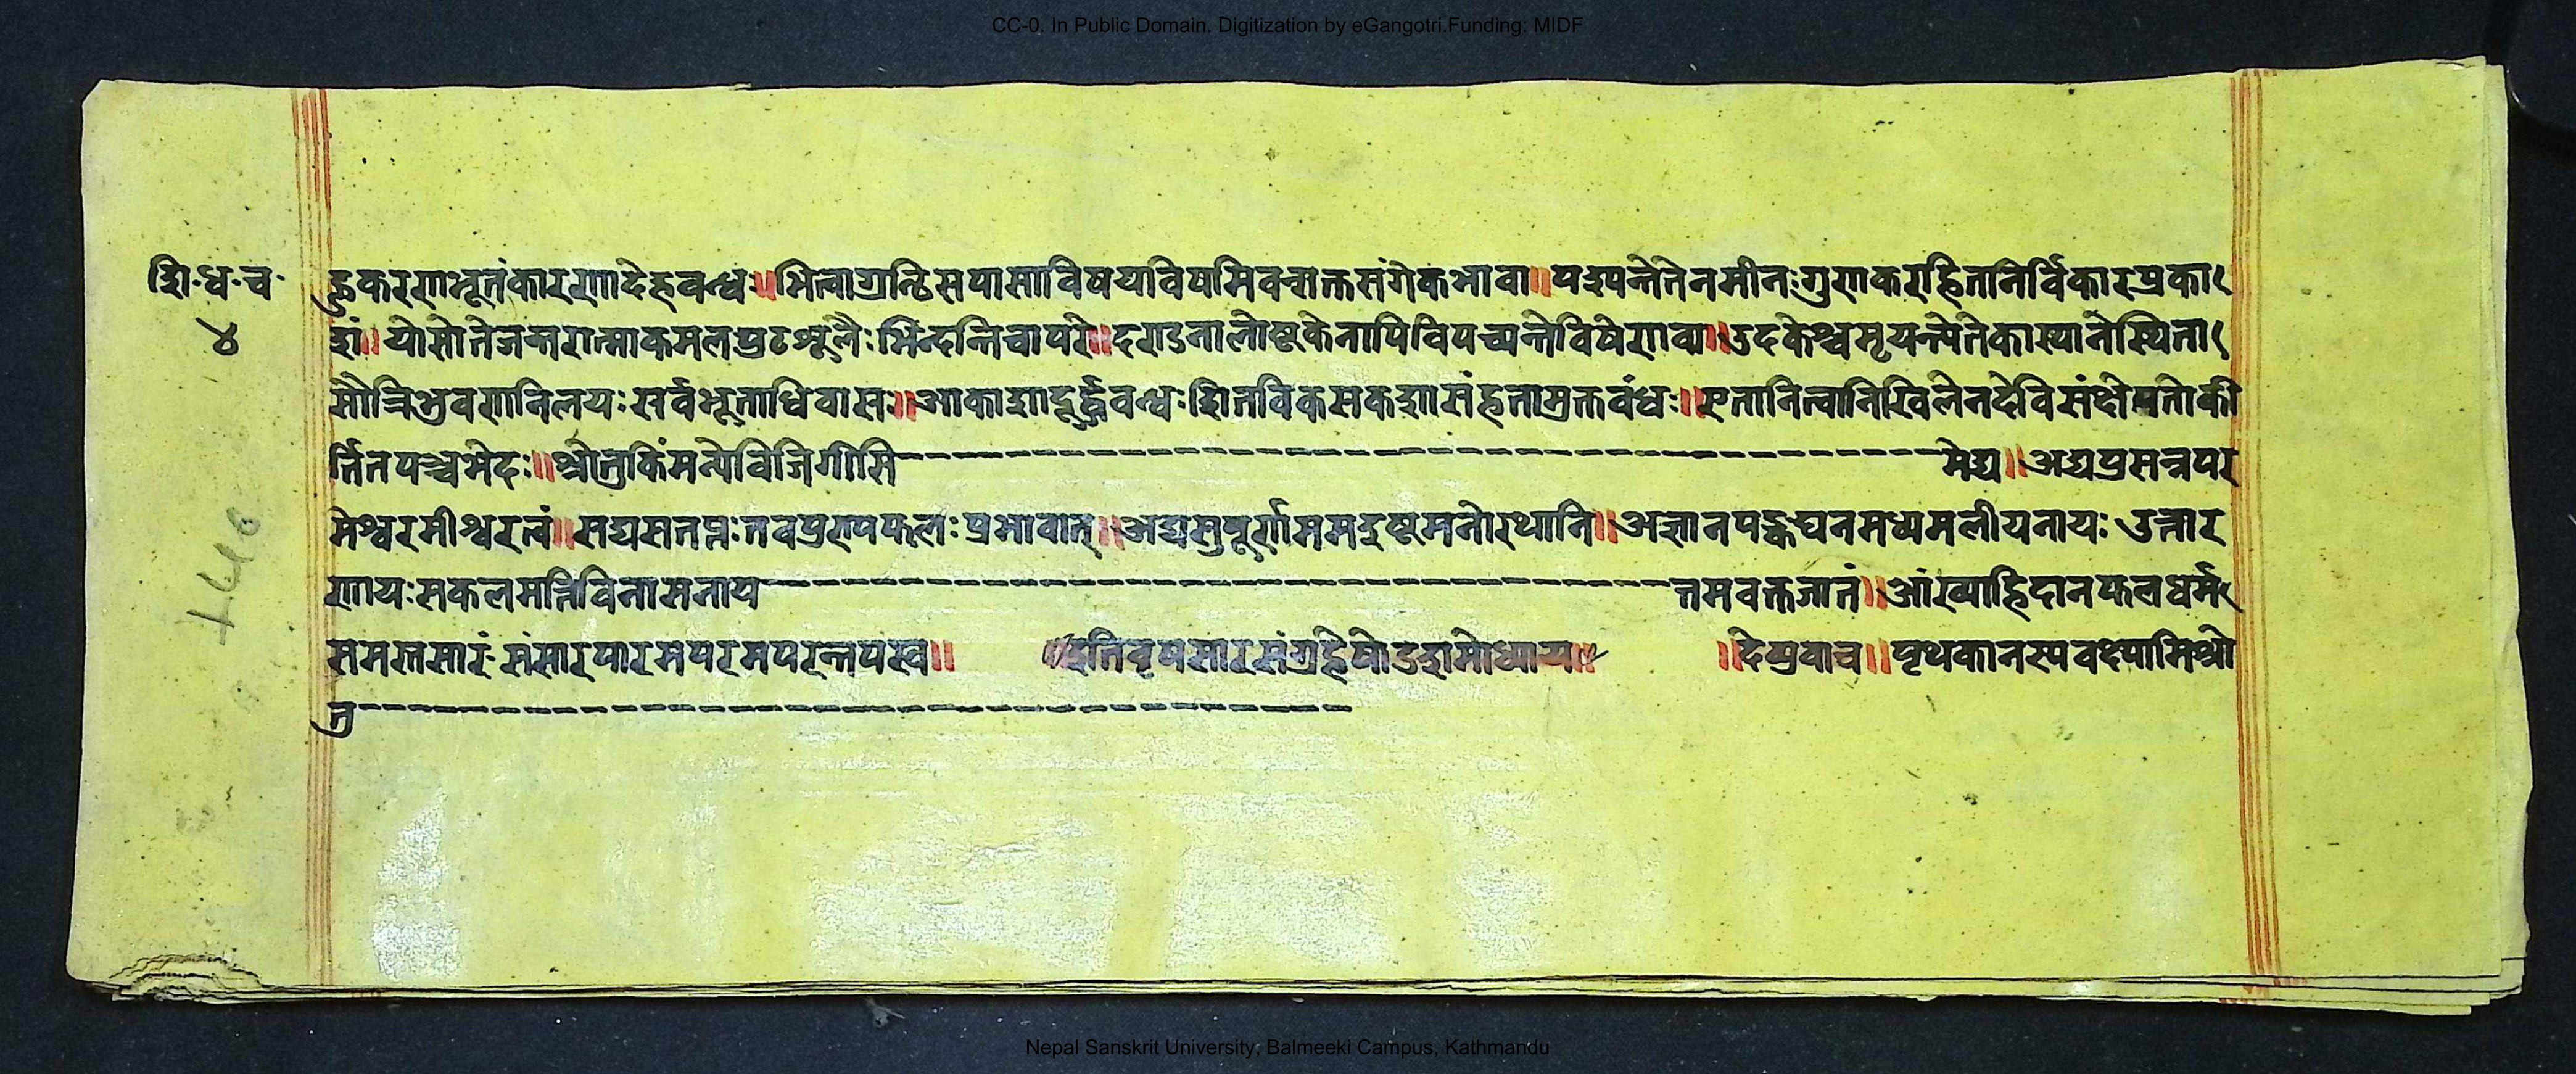 CC-0. In Public Domain. Digitization by eGangotri.Funding: MIDF
शि॰ध॰च॰
४
ङ्ककरणभूतंकारणादेहवन्ध॥भित्वाग्रन्थिसपासाविषद्यविषमिवन्मक्तसंगेकभावा॥पश्यन्तेतेनमीनःगुणकरहितनिर्विकारप्रका
शं॥योसोतेजन्तरात्माकमलप्रुटशूलैःभिन्दन्तिचापरे॥दण्डनालोष्टकेनापिविपच्यन्तेविषेणवा॥उदकेश्चमृयन्त्येतेकास्थानेस्थिता
सौत्रिभुवणनिलयःसर्वभूताधिवासः॥आकाशादूर्द्धवन्धःशितविकसकशासंहतामृक्तवंधः॥एतानित्वानिखिलेनदेविसंक्षेपतोकी
र्त्तितपञ्चभेदः॥श्रोतुकिंमन्येविजिगीसि मेद्य॥अद्यप्रसन्नपर
मेश्वरमीश्वरत्वं॥सद्यसतप्नःतवप्रुण्यफलःप्रभावात्॥अद्यसुषूर्णाममदुष्टमनोरथानि॥अज्ञानपङ्कघनमध्यमलीयनायः उत्तार
णायःसकलमत्तिविनासनाय तमवक्तजातं॥आंख्याहिदानफलधर्म
समस्तसारं संसारपारमपरमपरन्तपस्व॥ ॥इतिवृषसारसंग्रहेषोडशमोध्याय॥ ॥देव्युवाच॥पृथकानस्यवक्ष्यामिश्रो
तु
Nepal Sanskrit University, Balmeeki Campus, Kathmandu